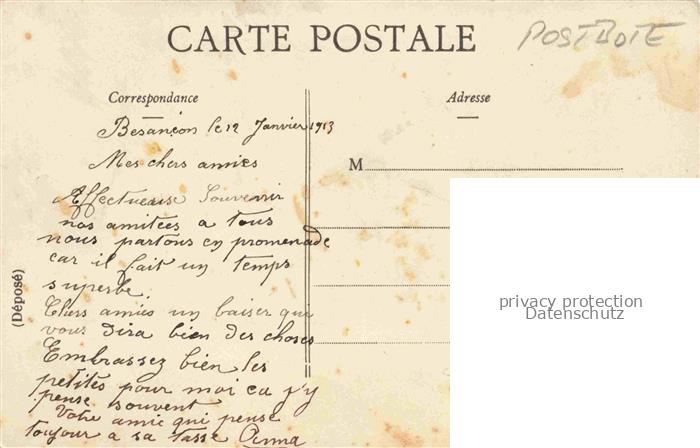 CARTE POSTALE
POSTBOTE
Correspondance
Adresse
Besançon le 12 Janvier 1913
Mes chers amies
M
Affectueuse Souvenir
nos amitées a tous
nous partons en promenade
car il fait un temps
superbe
Chers amies un baiser qui
vous dira bien des choses
Embrassez bien les
petites pour moi ca j'y
pense souvent
Votre amie qui pense
toujour a sa tasse Anna
(Déposé)
privacy protection
Datenschutz